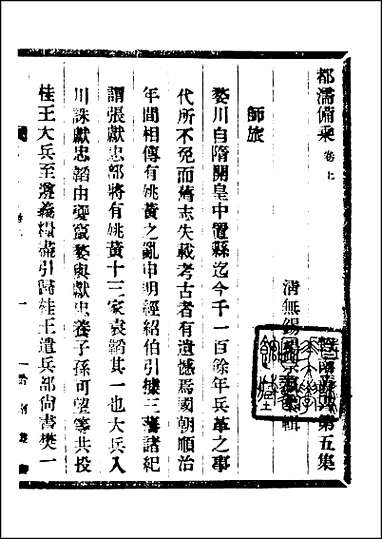 都濡備乘 卷上
黔南叢書第五集
清無錫
輯
師旅
婺川自隋開皇中置縣迄今千一百餘年兵革之事
代所不免而舊志失載考古者有遺憾焉國朝順治
年間相傳有姚黃之亂申明經紹伯引據三藩諸紀
謂張獻忠部將有姚黃十三家袁韜其一也大兵入
川誅獻忠韜由夔竄婺與獻忠養子孫可望等共投
桂王大兵至遵義糧盡引歸桂王遣兵部尚書樊一
一